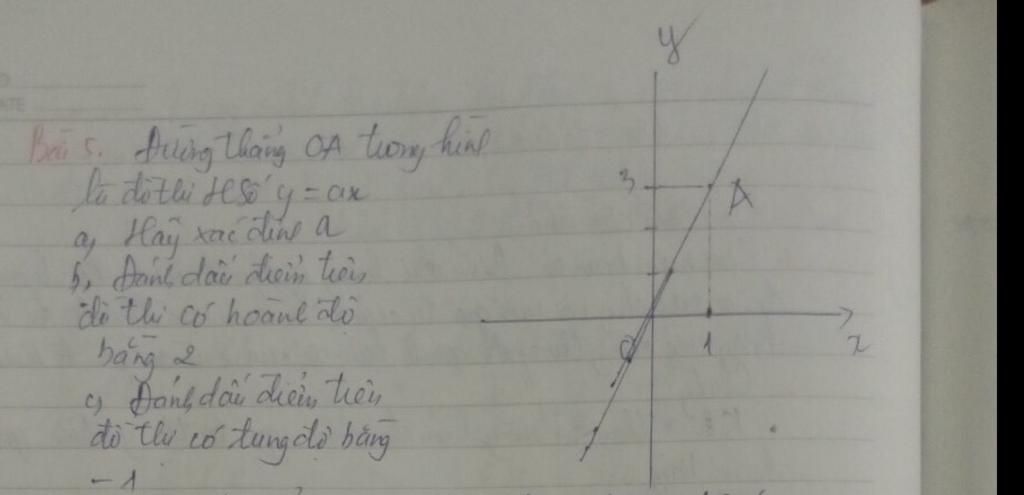 ATE
Bài 5. Đường thẳng OA trong hình
là đồ thị H số y = ax
a, Hãy xác định a
b, Đánh dấu điểm trên
đồ thị có hoành độ
bằng 2
c, Đánh dấu điểm trên
đồ thị có tung độ bằng
-1
y
3
A
O
1
x